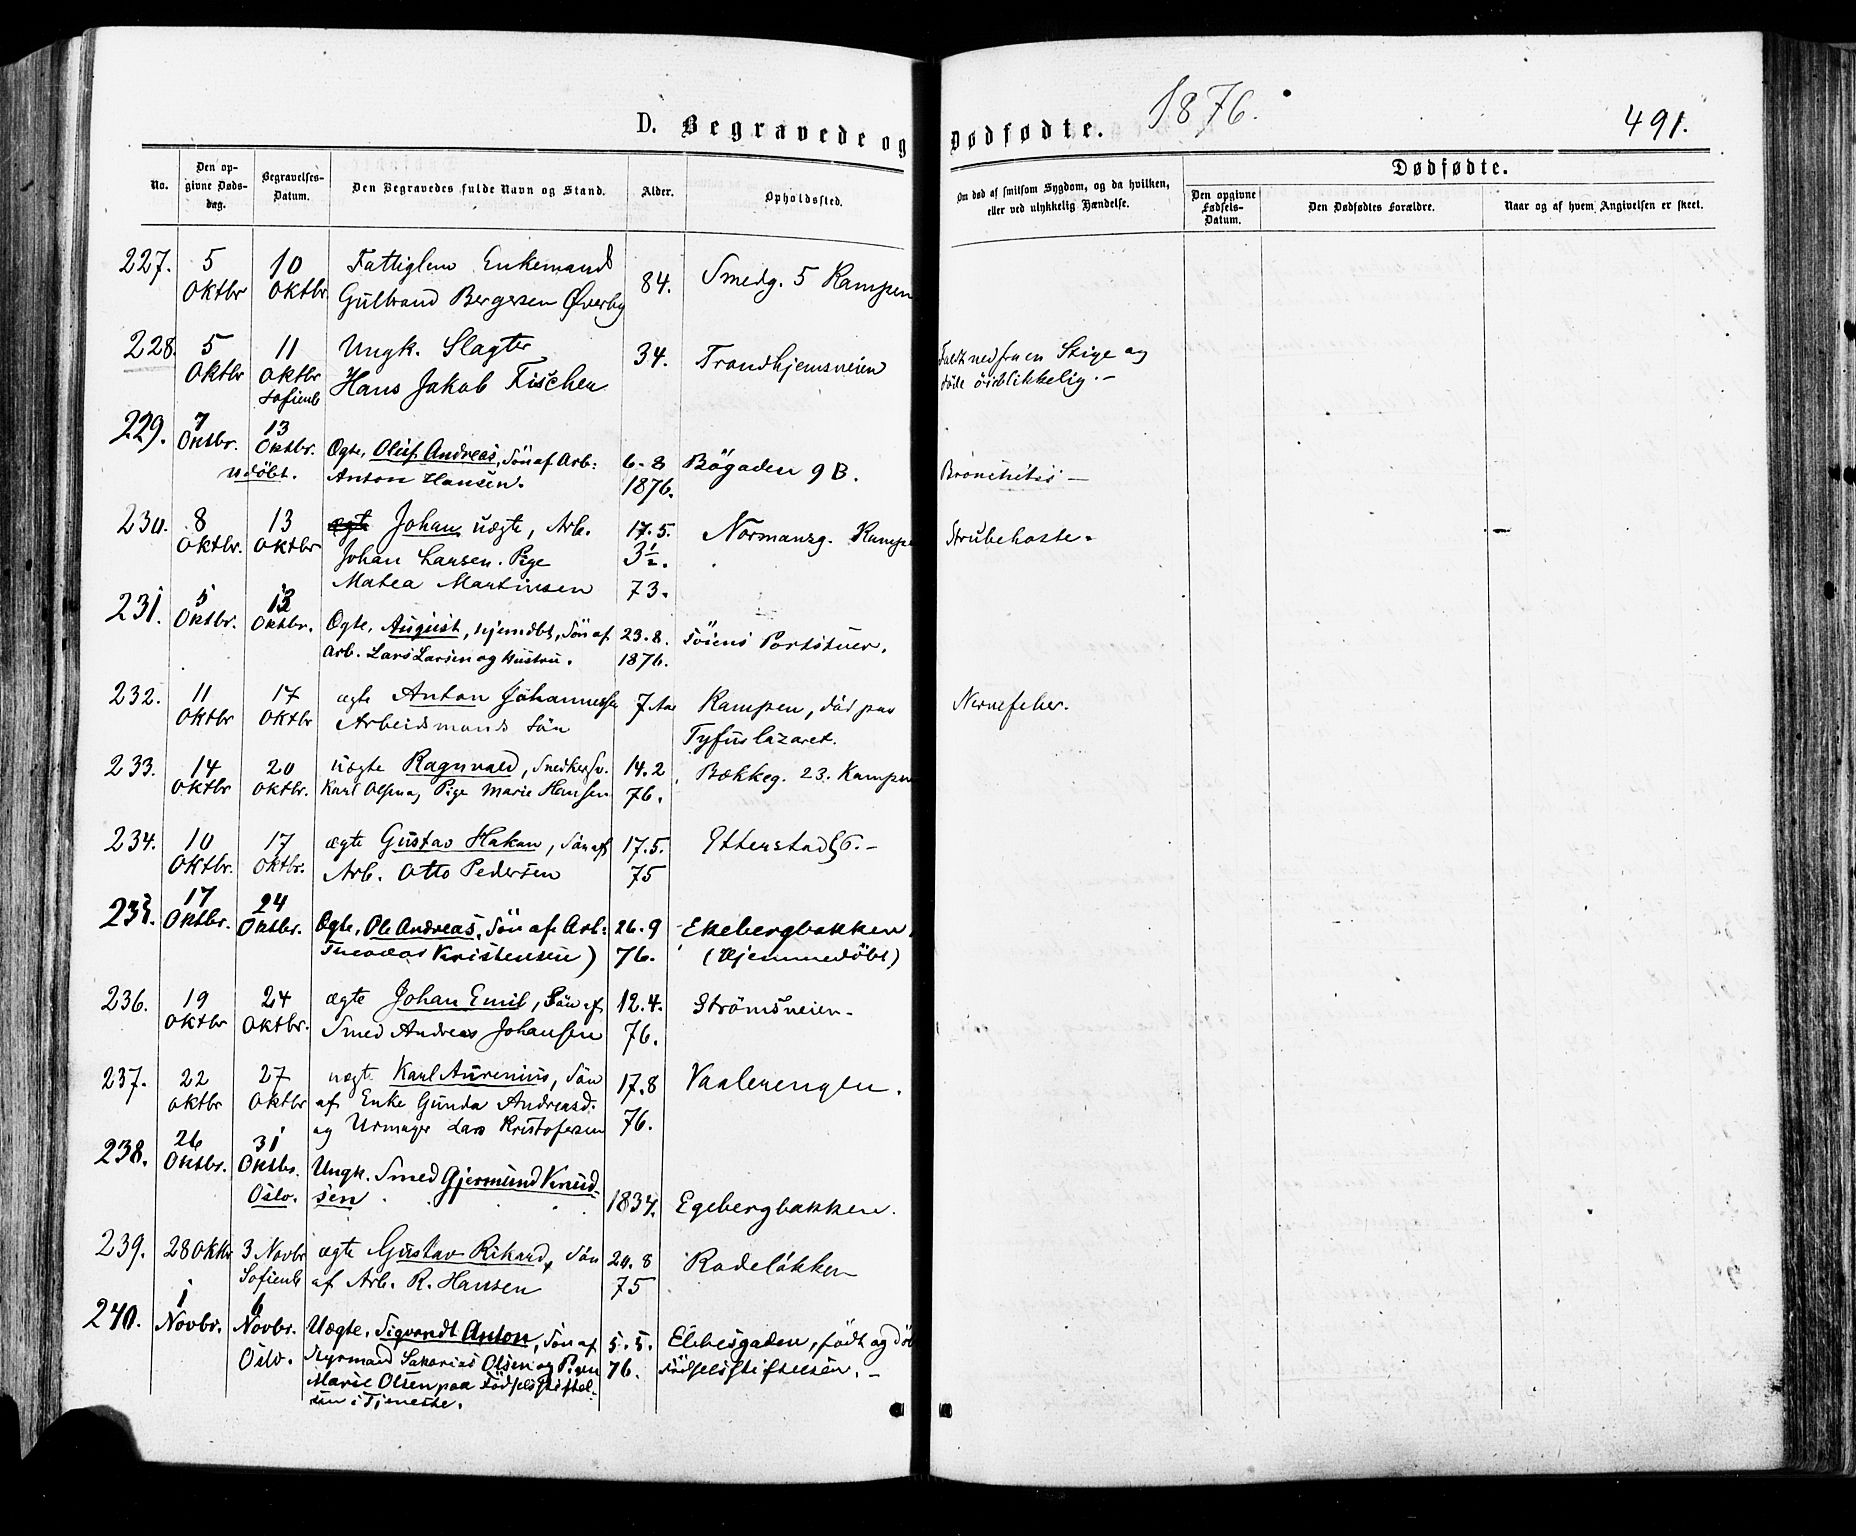 D. Begravede og Dødfødte. 1876. 491.
No.
Den opgivne Dødsdag.
Begravelses-Datum.
Den Begravedes fulde Navn og Stand.
Alder.
Opholdssted.
Om død af smitsom Sygdom, og da hvilken, eller ved ulykkelig Hændelse.
Dødfødte.
Den opgivne Fødsels-Datum.
Den Dødfødtes Forældre.
Naar og af hvem Angivelsen er skeet.
227. 5 Oktbr 10 Oktbr Fattiglem Enkemand
Gulbrand Bergersen Øverby 84. Smedg. 5 Kampen
228. 5 Oktbr 11 Oktbr Sofienb Ungk. Slagter
Hans Jakob Fischer 34. Trondhjemsveien Faldt ned fra en Stige og
døde öieblikkelig.-
229. 7 Oktbr. 13 Oktbr. udöbt. Ægte, Oluf Andreas, Sön af Arb:
Anton Hansen. 6-8 1876. Bögaden 9 B. Bronchitis -
230. 8 Oktbr. 13 Oktbr ægte Johan uægte, Arb.
Johan Larsen. Pige
Matea Martinsen 17.5. 3½. 73. Normansg. Kampe Strubehoste.
231. 5 Oktbr. 13 Oktbr. Ægte, August, hjemdbt, Sön af
Arb. Lars Larsen og Hustru. 23.8. 1876. Töiens Portstuer.
232. 11 Oktbr 17 Oktbr ægte Anton Johannessen
Arbeidsmands Sön 7 Aar Kampen, död paa
Tyfuslazaret. Nervefeber.
233. 14 Oktbr 20 Oktbr. uægte Ragnvald, Snedkersv.
Karl Olsen og Pige Marie Hansen 14.2 76. Bækkeg. 23. Kampen
234. 10 Oktbr. 17 Oktbr. ægte Gustav Hakon, Sön af
Arb. Otto Pedersen 17.5. 75 Etterstad 6.-
235. 17 Oktbr. 24 Oktbr. Ægte, Ole Andreas, Sön af Arb:
Theodor Kristensen) 26-9 76. Ekebergbakken.
(Hjemmedöbt)
236. 19 Oktbr 24 Oktbr. ægte Johan Emil, Sön af
Smed Andreas Johansen 12.4. 76. Strömsveien.
237. 22 Oktbr 27 Oktbr uægt. Karl Aurenius, Sön
af Enke Gunda Andreasd.
og Urmager Lars Kristofersen 17.8 76. Vaalerengen.
238. 26 Oktbr. 31 Oktbr. Oslo. Ungk. Smed Gjermund Knud-
sen. 1834. Egebergbakken.
239. 28 Oktbr 3 Novbr Sofienb ægte Gustav Rikard, Sön
af Arb. R. Hansen 20.8 75 Rodelökken
240. 1 Novbr. 6 Novbr. Oslo. Uægte, Sigvardt Anton, Sön af
Styrmand Sakarias Olsen og Pigen
Marie Olsen paa Födselsstiftel-
sen i Tjeneste. 5.5. 76. Elvesgaden, födt og döb
Födselsstiftelsen.-